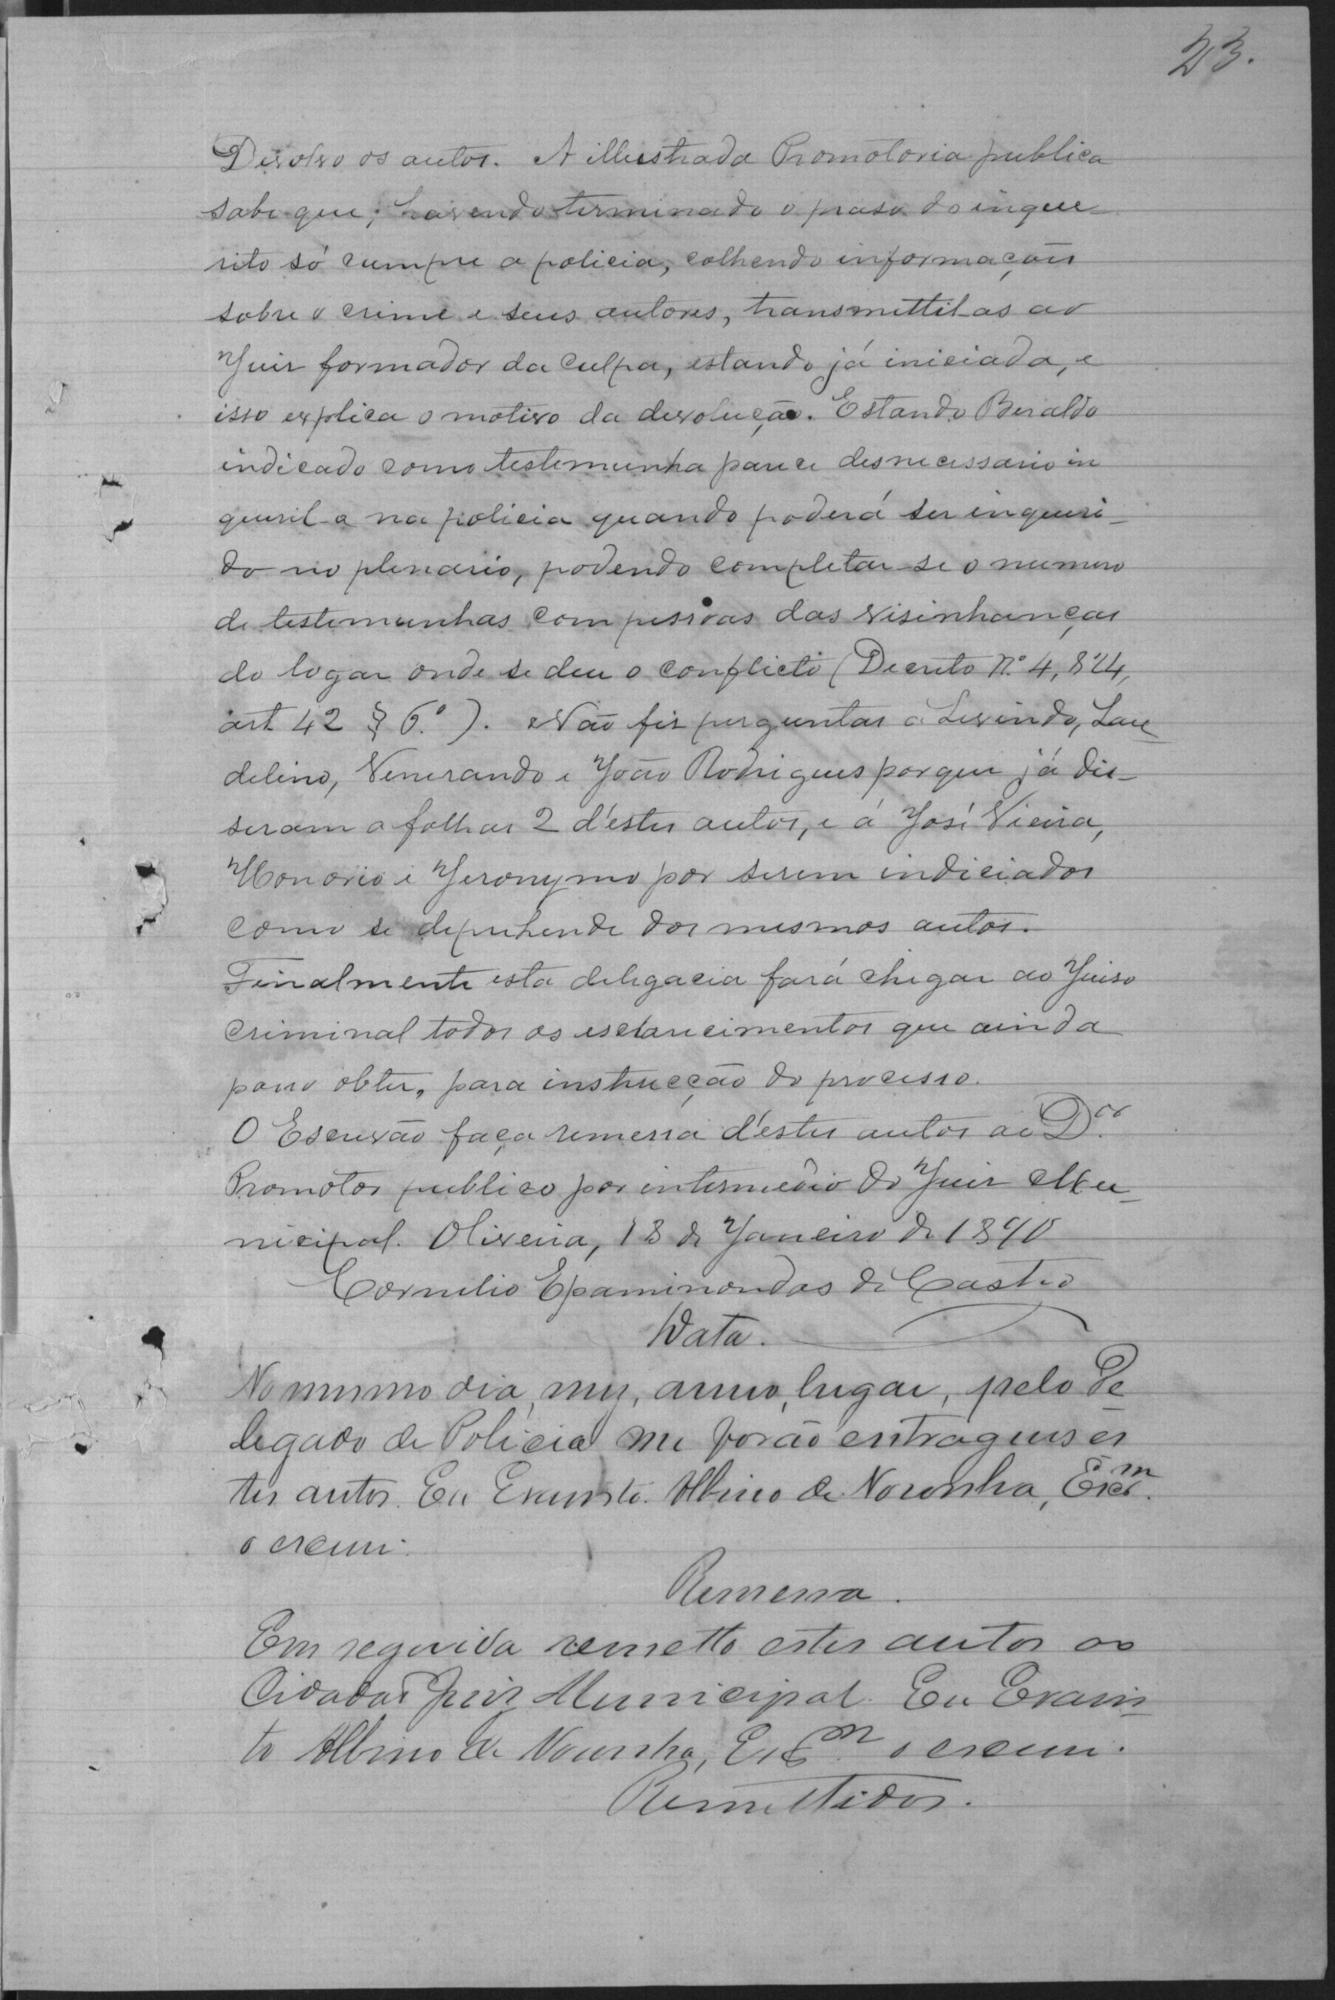 23.
Devolvo os autos. A illustrada Promotoria publica
sabe que, havendo terminado o praso do inque-
rito só cumpre a policia, colhendo informações
sobre o crime e seus autores, transmittil-as ao
Juiz formador da culpa, estando já iniciada, e
isso explica o motivo da devolução. Estando Beraldo
indicado como testemunha parece desnecessario in
queril-a na policia quando poderá ser inqueri-
do no plenario, podendo completar-se o numero
de testemunhas com pessoas das visinhanças
do logar onde se deu o conflicto (Decreto N.º 4,824,
art 42 § 6.º). Não fiz perguntas a Levindo, Lau-
delino, Venerando e João Rodrigues porque já dis-
seram a folhas 2 d'estes autos, e á José Vieira,
Honorio e Jeronymo por serem indiciados
como se deprehende dos mesmos autos.
Finalmente esta delegacia fará chegar ao Juiso
criminal todos os esclarecimentos que ainda
possa obter, para instrucção do processo.
O Escrivão faça remessa d'estes autos ao D.or
Promotor publico por intermedio do Juiz Mu-
nicipal. Oliveira, 18 de Janeiro de 1890
Cornelio Epaminondas de Castro
Data.
No mesmo dia, mez, anno, lugar, pelo De-
legado de Policia me forão entragues es
tes autos. Eu Evaristo Albino de Noronha, Escr.m
o escrevi.
Remessa.
Em seguida remetto estes autos ao
Cidadão Juiz Municipal. Eu Evaris-
to Albino de Noronha, Escm o escrevi.
Remettidos.